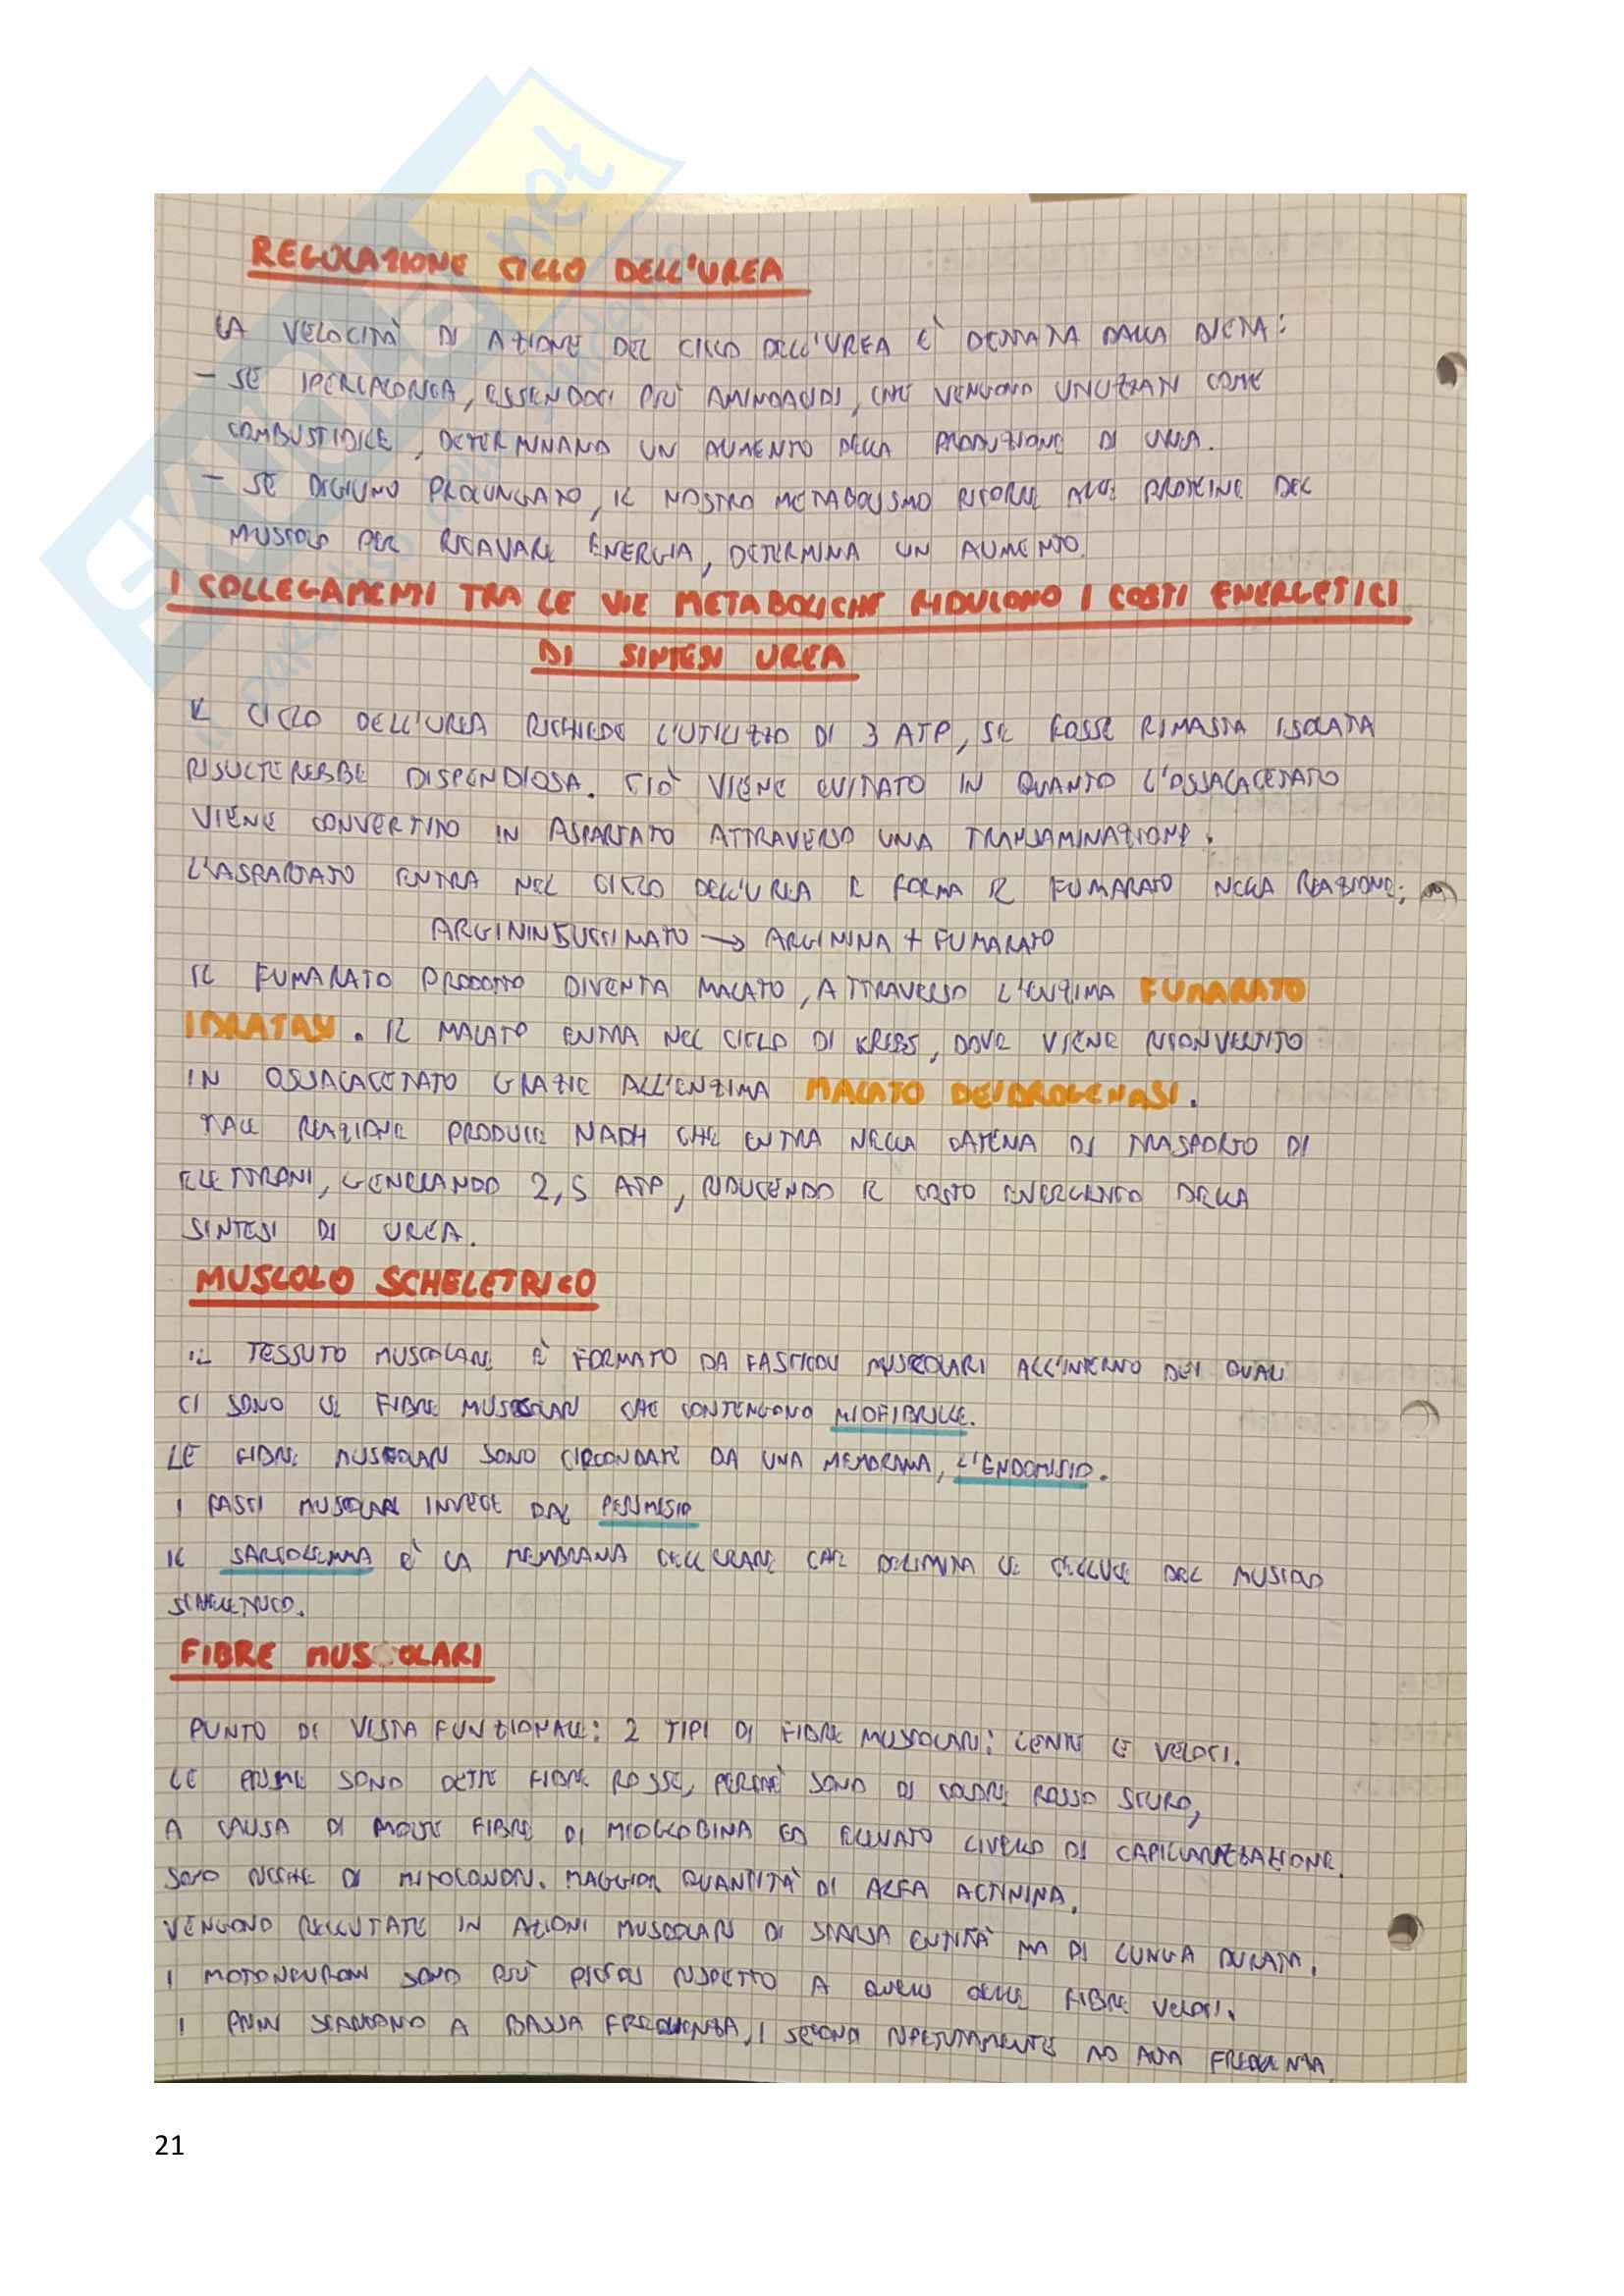 REGOLAZIONE CICLO DELL'UREA
LA VELOCITÀ DI AZIONE DEL CICLO DELL'UREA È DETTATA DALLA DIETA:
- SE IPERCALORICA, ESSENDOCI PIÙ AMINOACIDI, CHE VENGONO UTILIZZATI COME
COMBUSTIBILE, DETERMINANO UN AUMENTO DELLA PRODUZIONE DI UREA.
- SE DIGIUNO PROLUNGATO, IL NOSTRO METABOLISMO RICORRE ALLE PROTEINE DEL
MUSCOLO PER RICAVARE ENERGIA, DETERMINA UN AUMENTO.
I COLLEGAMENTI TRA LE VIE METABOLICHE RIDUCONO I COSTI ENERGETICI
DI SINTESI UREA
IL CICLO DELL'UREA RICHIEDE L'UTILIZZO DI 3 ATP, SE FOSSE RIMASTA ISOLATA
RISULTEREBBE DISPENDIOSA. CIÒ VIENE EVITATO IN QUANTO L'OSSALACETATO
VIENE CONVERTITO IN ASPARTATO ATTRAVERSO UNA TRANSAMINAZIONE.
L'ASPARTATO ENTRA NEL CICLO DELL'UREA E FORMA IL FUMARATO NELLA REAZIONE:
ARGININSUCCINATO → ARGININA + FUMARATO
IL FUMARATO PRODOTTO DIVENTA MALATO, ATTRAVERSO L'ENZIMA FUMARATO
IDRATASI. IL MALATO ENTRA NEL CICLO DI KREBS, DOVE VIENE RICONVERTITO
IN OSSALACETATO GRAZIE ALL'ENZIMA MALATO DEIDROGENASI.
TALE REAZIONE PRODUCE NADH CHE ENTRA NELLA CATENA DI TRASPORTO DI
ELETTRONI, GENERANDO 2,5 ATP, RIDUCENDO IL COSTO ENERGETICO DELLA
SINTESI DI UREA.
MUSCOLO SCHELETRICO
IL TESSUTO MUSCOLARE È FORMATO DA FASCICOLI MUSCOLARI ALL'INTERNO DEI QUALI
CI SONO LE FIBRE MUSCOLARI CHE CONTENGONO MIOFIBRILLE.
LE FIBRE MUSCOLARI SONO CIRCONDATE DA UNA MEMBRANA, L'ENDOMISIO.
I FASCI MUSCOLARI INVECE DAL PERIMISIO
IL SARCOLEMMA È LA MEMBRANA CELLULARE CHE DELIMITA LE CELLULE DEL MUSCOLO
SCHELETRICO.
FIBRE MUSCOLARI
PUNTO DI VISTA FUNZIONALE: 2 TIPI DI FIBRE MUSCOLARI: LENTE E VELOCI.
LE PRIME SONO DETTE FIBRE ROSSE, PERCHÈ SONO DI COLORE ROSSO SCURO,
A CAUSA DI MOLTE FIBRE DI MIOGLOBINA ED ELEVATO LIVELLO DI CAPILLARIZZAZIONE.
SONO RICCHE DI MITOCONDRI. MAGGIOR QUANTITÀ DI ALFA ACTININA.
VENGONO RECLUTATE IN AZIONI MUSCOLARI DI SCARSA ENTITÀ MA DI LUNGA DURATA.
I MOTONEURONI SONO PIÙ PICCOLI RISPETTO A QUELLI DELLE FIBRE VELOCI.
I PRIMI SCARICANO A BASSA FREQUENZA, I SECONDI RIPETUTAMENTE AD ALTA FREQUENZA
21